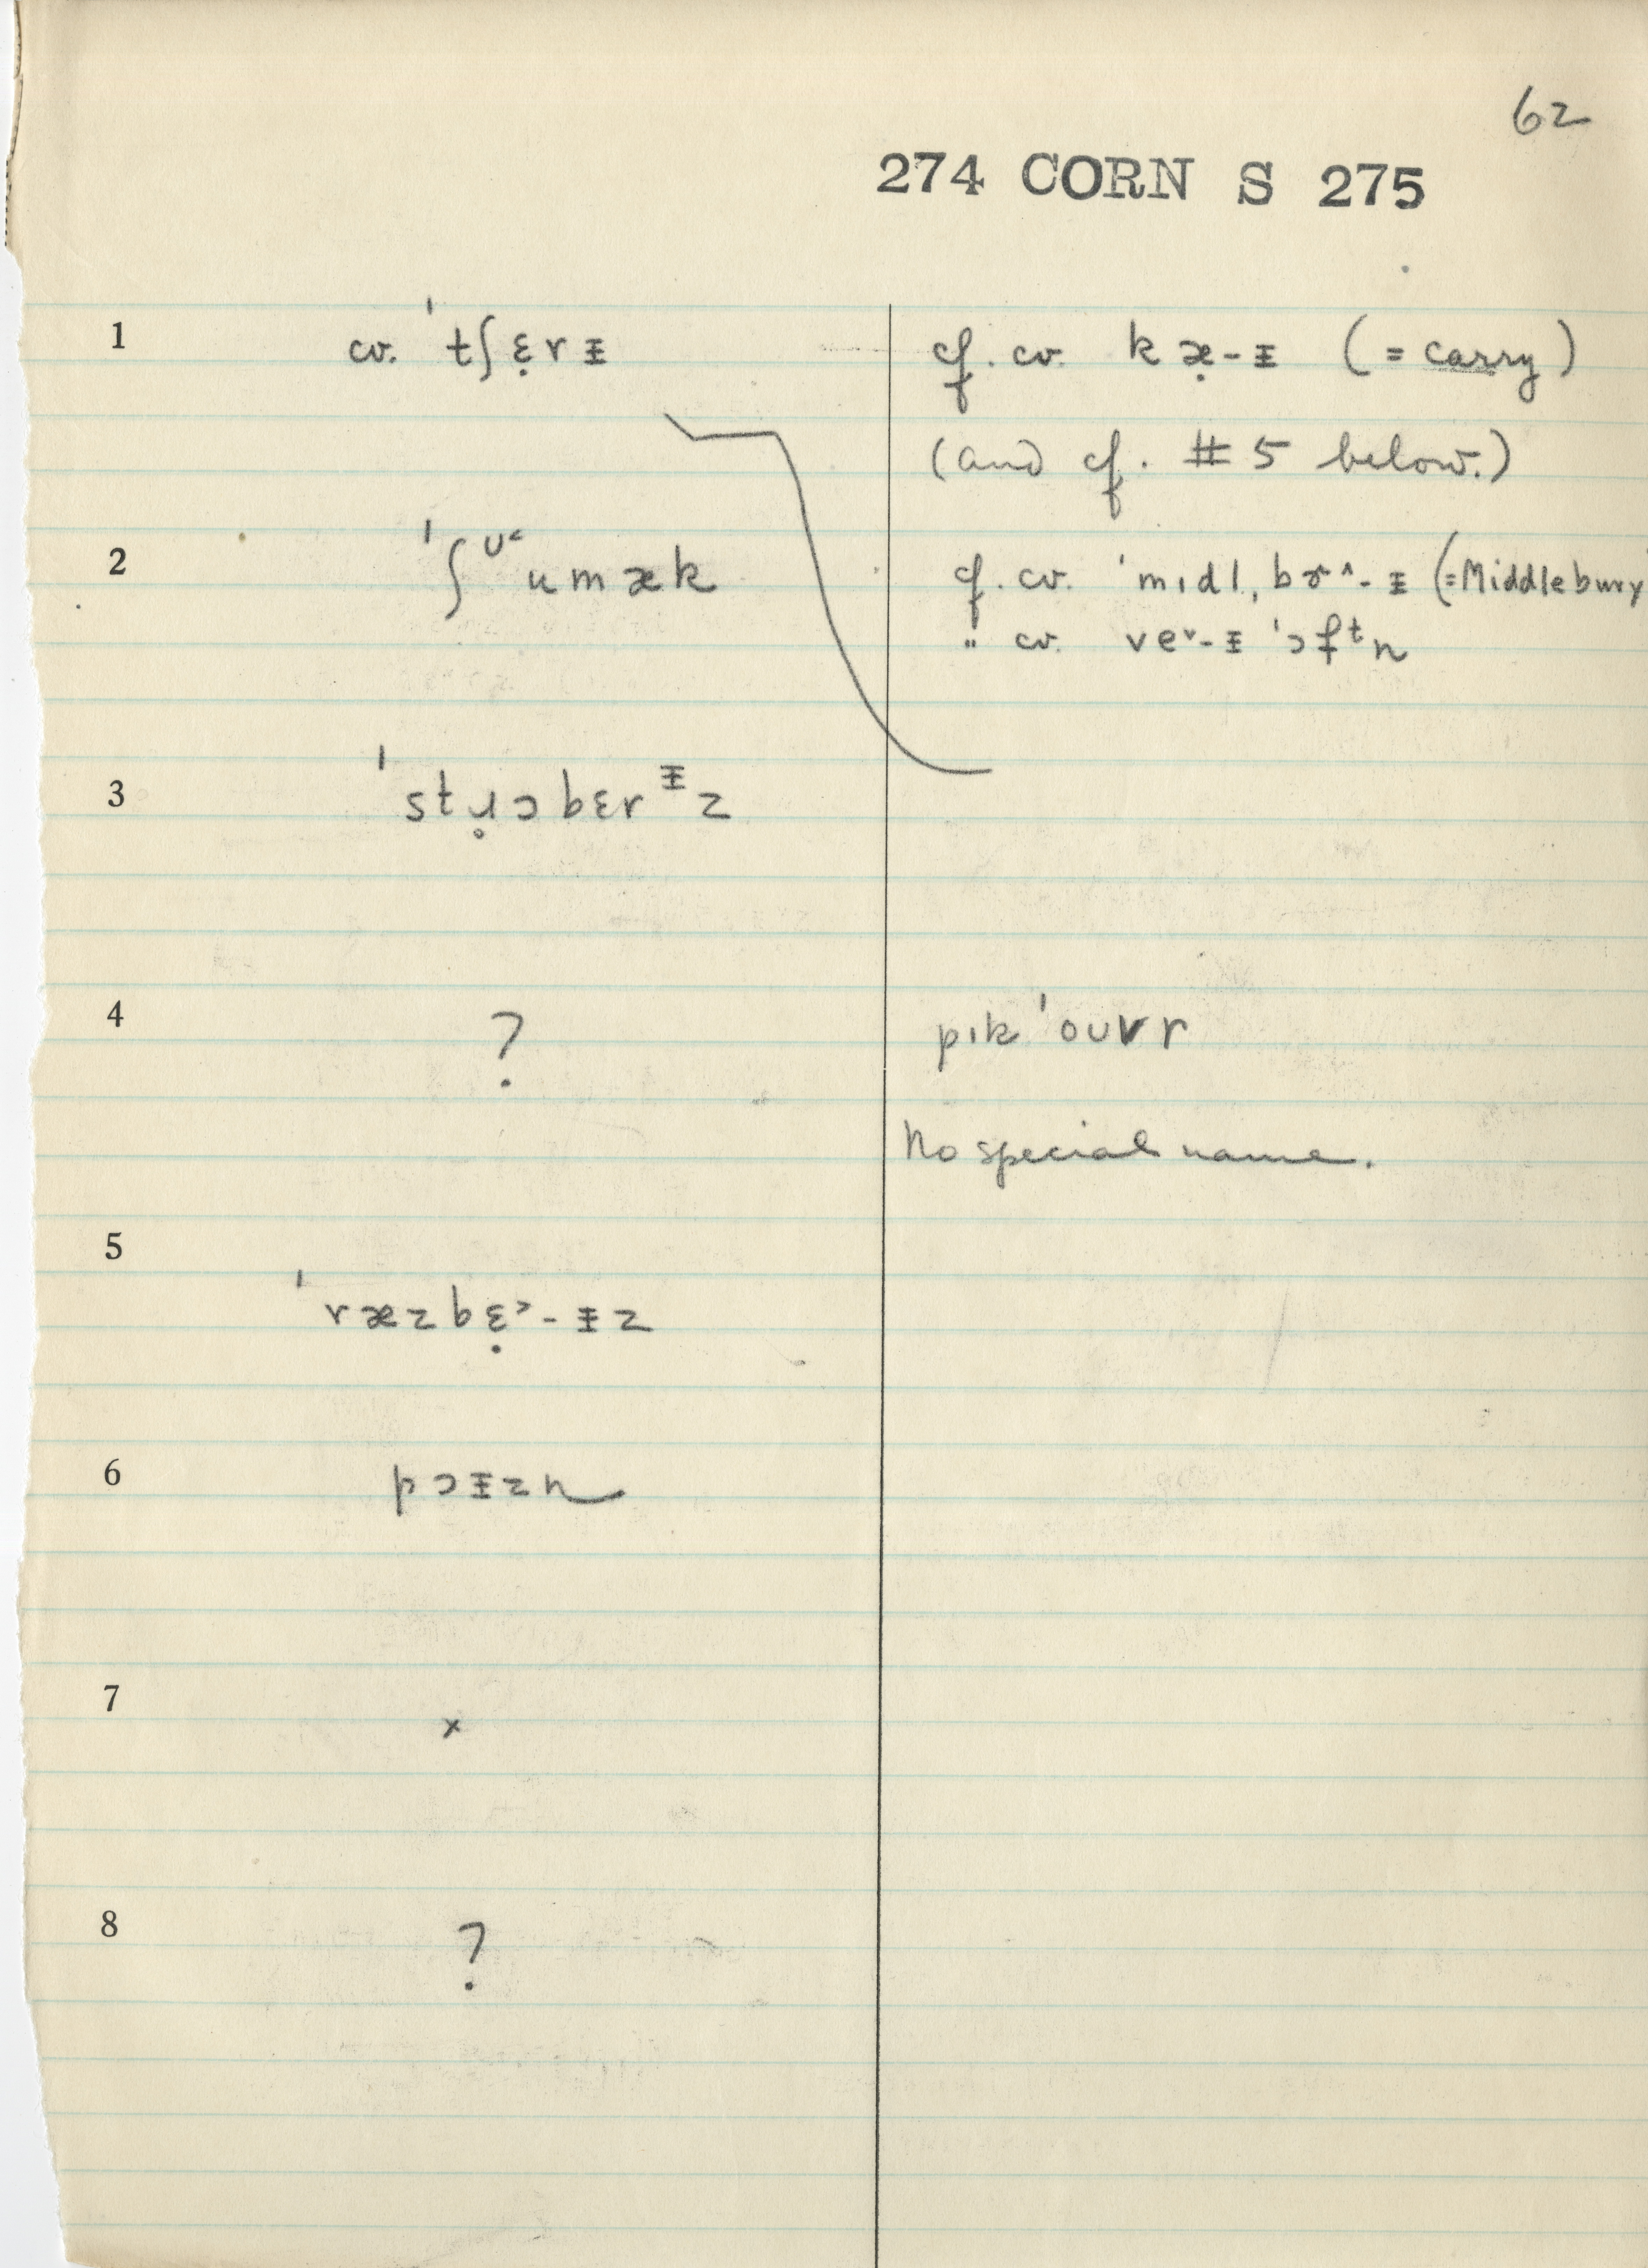 62
274 CORN S 275
1 cv. ˈtʃɛ̣rɪ̵ cf. cv. kæ̣-ɪ̵ (= carry)
(and cf. #5 below.)
2 ˈʃᵁ˂umæk cf. cv. ˈmɪdl̩bɚ^-ɪ̵ (=Middlebury
" cv. veᵛ-ɪ̵ ˈɔfᵗn
3 ˈstɹ̥ɔbɛrᶧz
4 ? pɪk ˈoʊvr
No special name.
5
ˈræzbɛ̣˃-ɪ̵z
6 pɔɪ̵zn
7 x
8 ?